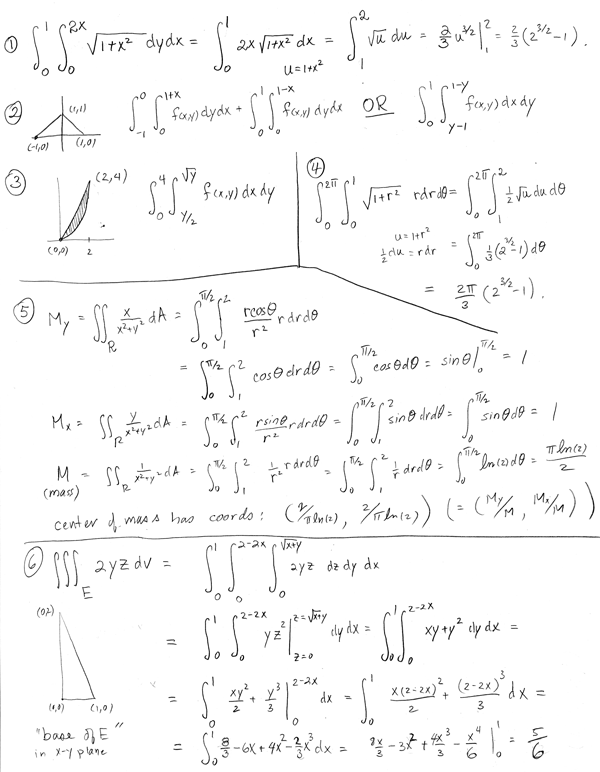 ① ∫₀¹ ∫₀^{2x} √(1+x²) dydx = ∫₀¹ 2x √(1+x²) dx = ∫₁² √u du = 2/3 u^{3/2} |₁² = 2/3 (2^{3/2} − 1).
u=1+x²
② (1,1) (-1,0) (1,0) ∫₋₁⁰ ∫₀^{1+x} f(x,y) dydx + ∫₀¹ ∫₀^{1-x} f(x,y) dydx OR ∫₀¹ ∫_{y-1}^{1-y} f(x,y) dxdy
③ (2,4) (0,0) 2 ∫₀⁴ ∫_{y/2}^{√y} f(x,y) dx dy
④ ∫₀^{2π} ∫₀¹ √(1+r²) rdrdθ = ∫₀^{2π} ∫₁² 1/2 √u du dθ
u=1+r²
1/2 du = rdr
= ∫₀^{2π} 1/3 (2^{3/2} −1) dθ
= 2π/3 (2^{3/2} −1).
⑤ My = ∬_R x/(x²+y²) dA = ∫₀^{π/2} ∫₁² rcosθ/r² r drdθ
= ∫₀^{π/2} ∫₁² cosθ drdθ = ∫₀^{π/2} cosθdθ = sinθ |₀^{π/2} = 1
Mx = ∬_R y/(x²+y²) dA = ∫₀^{π/2} ∫₁² rsinθ/r² rdrdθ = ∫₀^{π/2} ∫₁² sinθ drdθ = ∫₀^{π/2} sinθdθ = 1
M = ∬_R 1/(x²+y²) dA = ∫₀^{π/2} ∫₁² 1/r² rdrdθ = ∫₀^{π/2} ∫₁² 1/r drdθ = ∫₀^{π/2} ln(2) dθ = πln(2)/2
(mass)
center of mass has coords: (2/πln(2), 2/πln(2)) (= (My/M, Mx/M))
⑥ ∭_E 2yz dv = ∫₀¹ ∫₀^{2-2x} ∫₀^{√(x+y)} 2yz dz dy dx
(0,2) (0,0) (1,0)
= ∫₀¹ ∫₀^{2-2x} yz² |_{z=0}^{z=√(x+y)} dydx = ∫₀¹ ∫₀^{2-2x} xy+y² dy dx =
= ∫₀¹ xy²/2 + y³/3 |₀^{2-2x} dx = ∫₀¹ x(2-2x)²/2 + (2-2x)³/3 dx =
"base of E"
in x-y plane
= ∫₀¹ 8/3 − 6x + 4x² − 2/3 x³ dx = 8x/3 − 3x² + 4x³/3 − x⁴/6 |₀¹ = 5/6